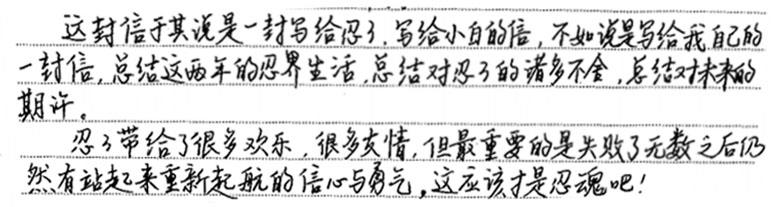 这封信于其说是一封写给忍3，写给小白的信，不如说是写给我自己的
一封信，总结这两年的忍界生活，总结对忍3的诸多不舍，总结对未来的
期许。
忍3带给了很多欢乐，很多友情，但最重要的是失败了无数之后仍
然有站起来重新起航的信心与勇气，这应该才是忍魂吧！